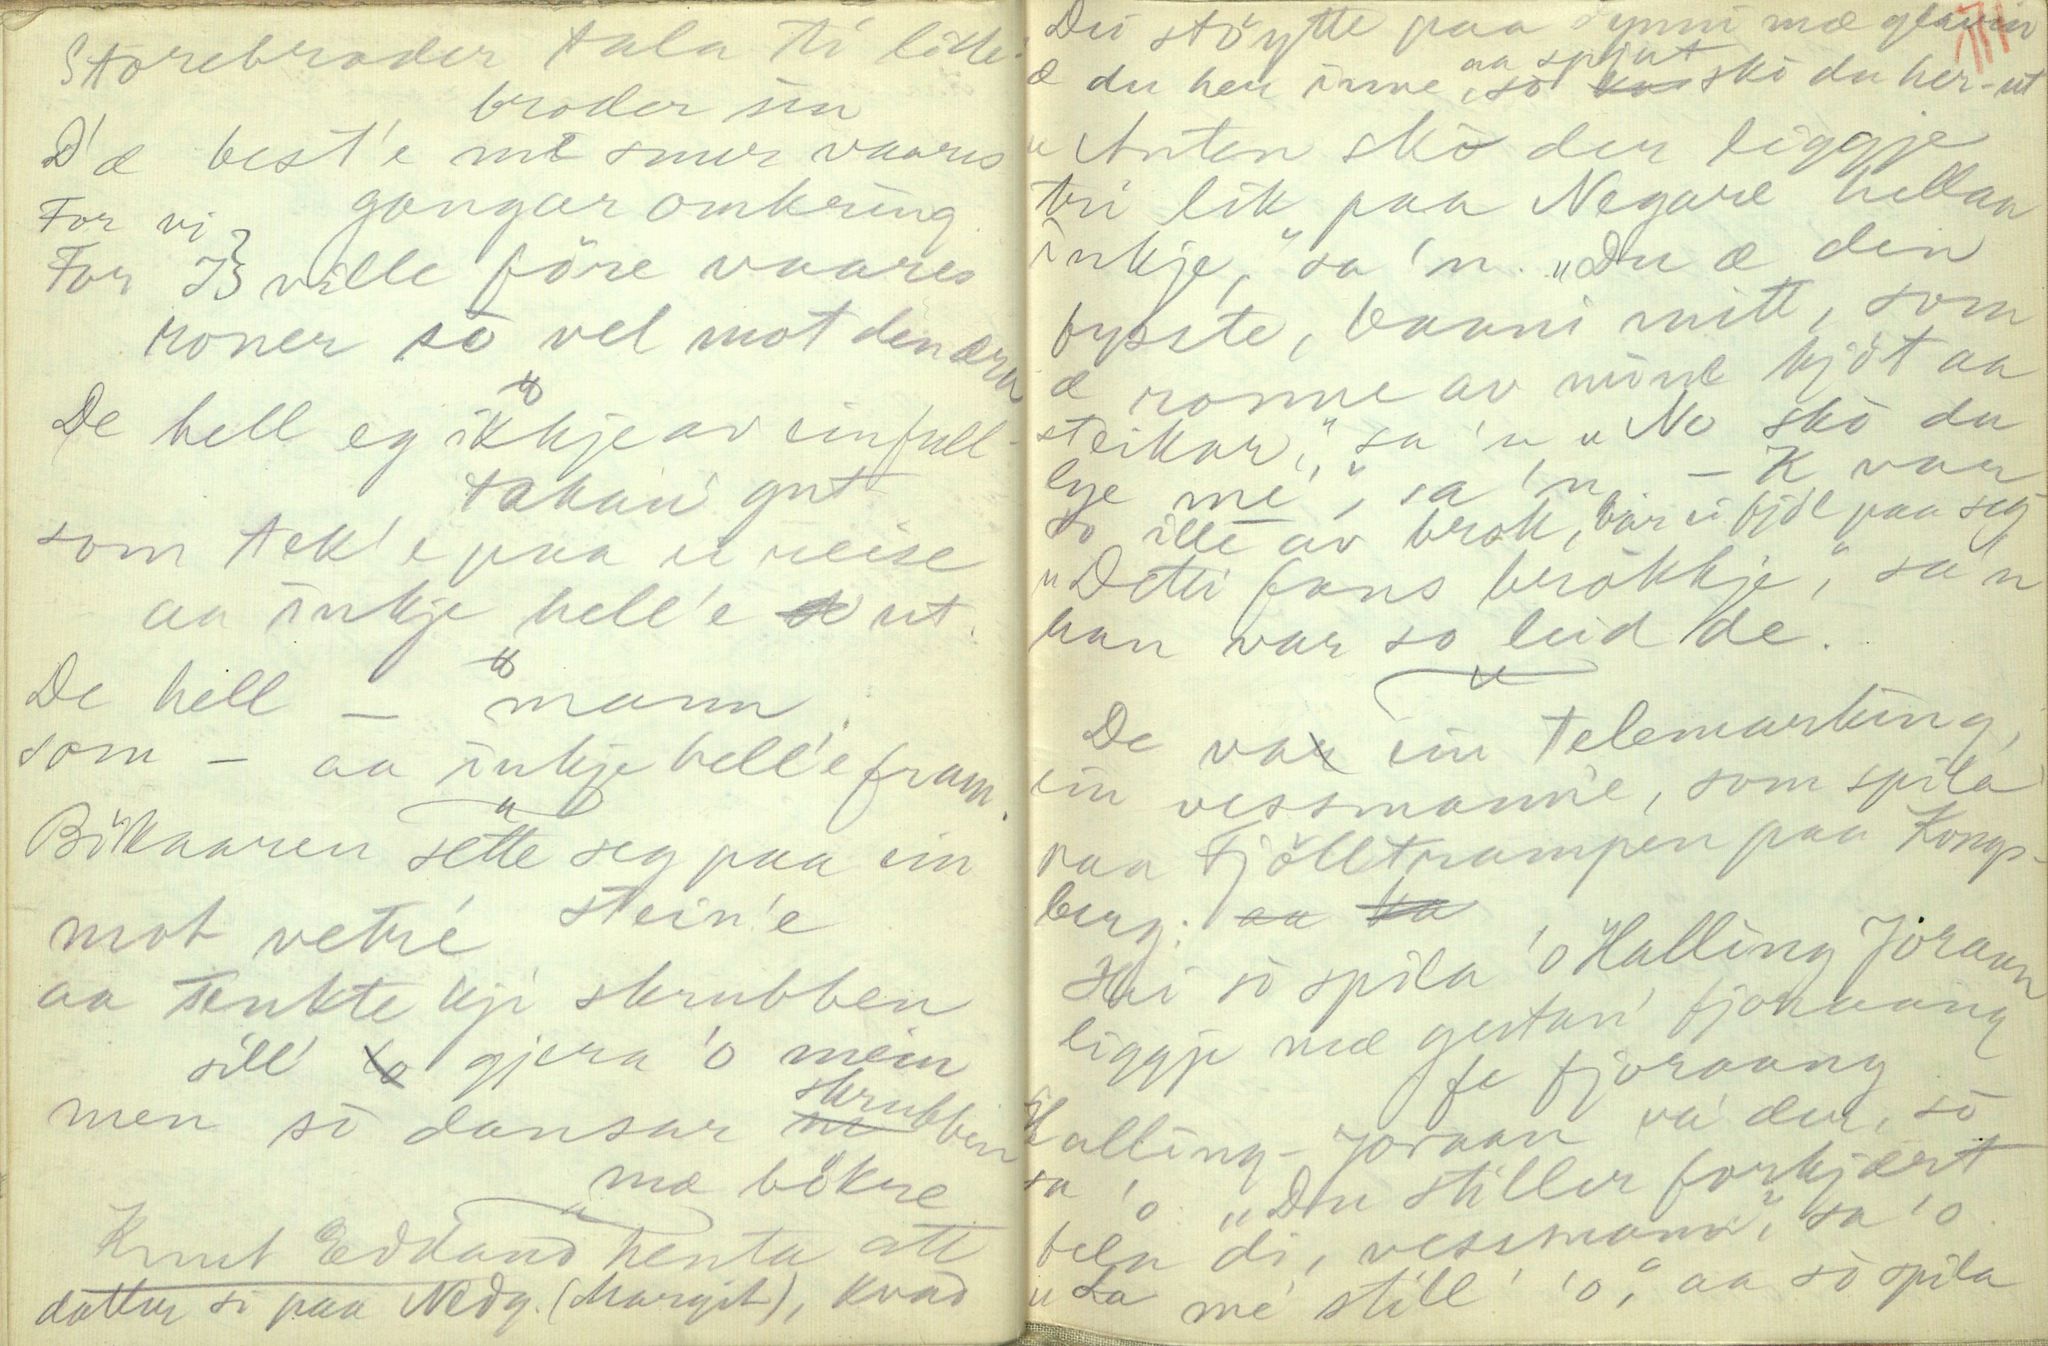 Storebroder tala ti litle-
broder sin
D'æ best'e me snur vaares
gangar omkring
For vi
For I ville före vaares
roner so vel mot den æra
De hell eg ikkje av ein full-
takan' gut
som tek'e paa ei reise
aa inkje hell'e ut.
De hell — mann
som — aa inkje hell'e fram.
Bökaaren sette seg paa ein
stein'e
mot vetre'
aa tenkte kji skrubben
sill' gjera 'o mein
men so dansar skrubben
mæ bökre
Knut Eddand henta att
dotter si paa Nedg. (Margit), kvad
Du stöytte paa dynni mæ glavin
aa spjut
æ du her inne, so sko du her-ut
„Anten sko der liggje
tri lik paa Negard hellaa
inkje," sa 'n. „Du æ den
fysste, baani mitt, som
æ ronne av mine kjöt aa
steikar," sa 'n „No sko du
lye me'," sa 'n. — K var
so ille av brok, bar ei fjöl paa seg
„Detti fans brökkje," sa'n
han var so leid de.
De va ein telemarking,
ein vessmann'e, som spila
paa Fjölltrampen paa Kongs-
berg.
Hai so spila 'o Halling Joraan
liggje mæ gjestari' fjoraang
fe fjoraang
Halling-Joraan va' der, so
sa 'o. „Du stiller forkjært
fela di, vessmann," sa 'o.
„La me' still' 'o," aa so spila